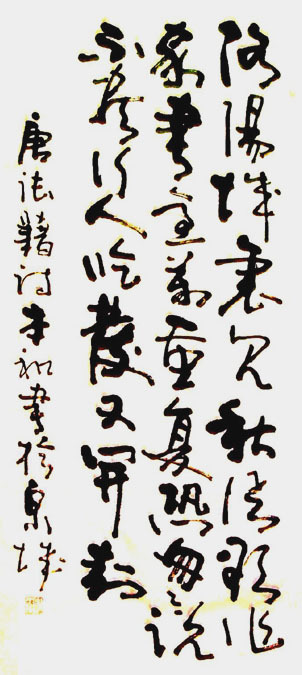 洛陽城裏見秋風欲作
家書意萬重复恐匆匆説
不盡行人临發又開封
唐張籍詩 書於泉城